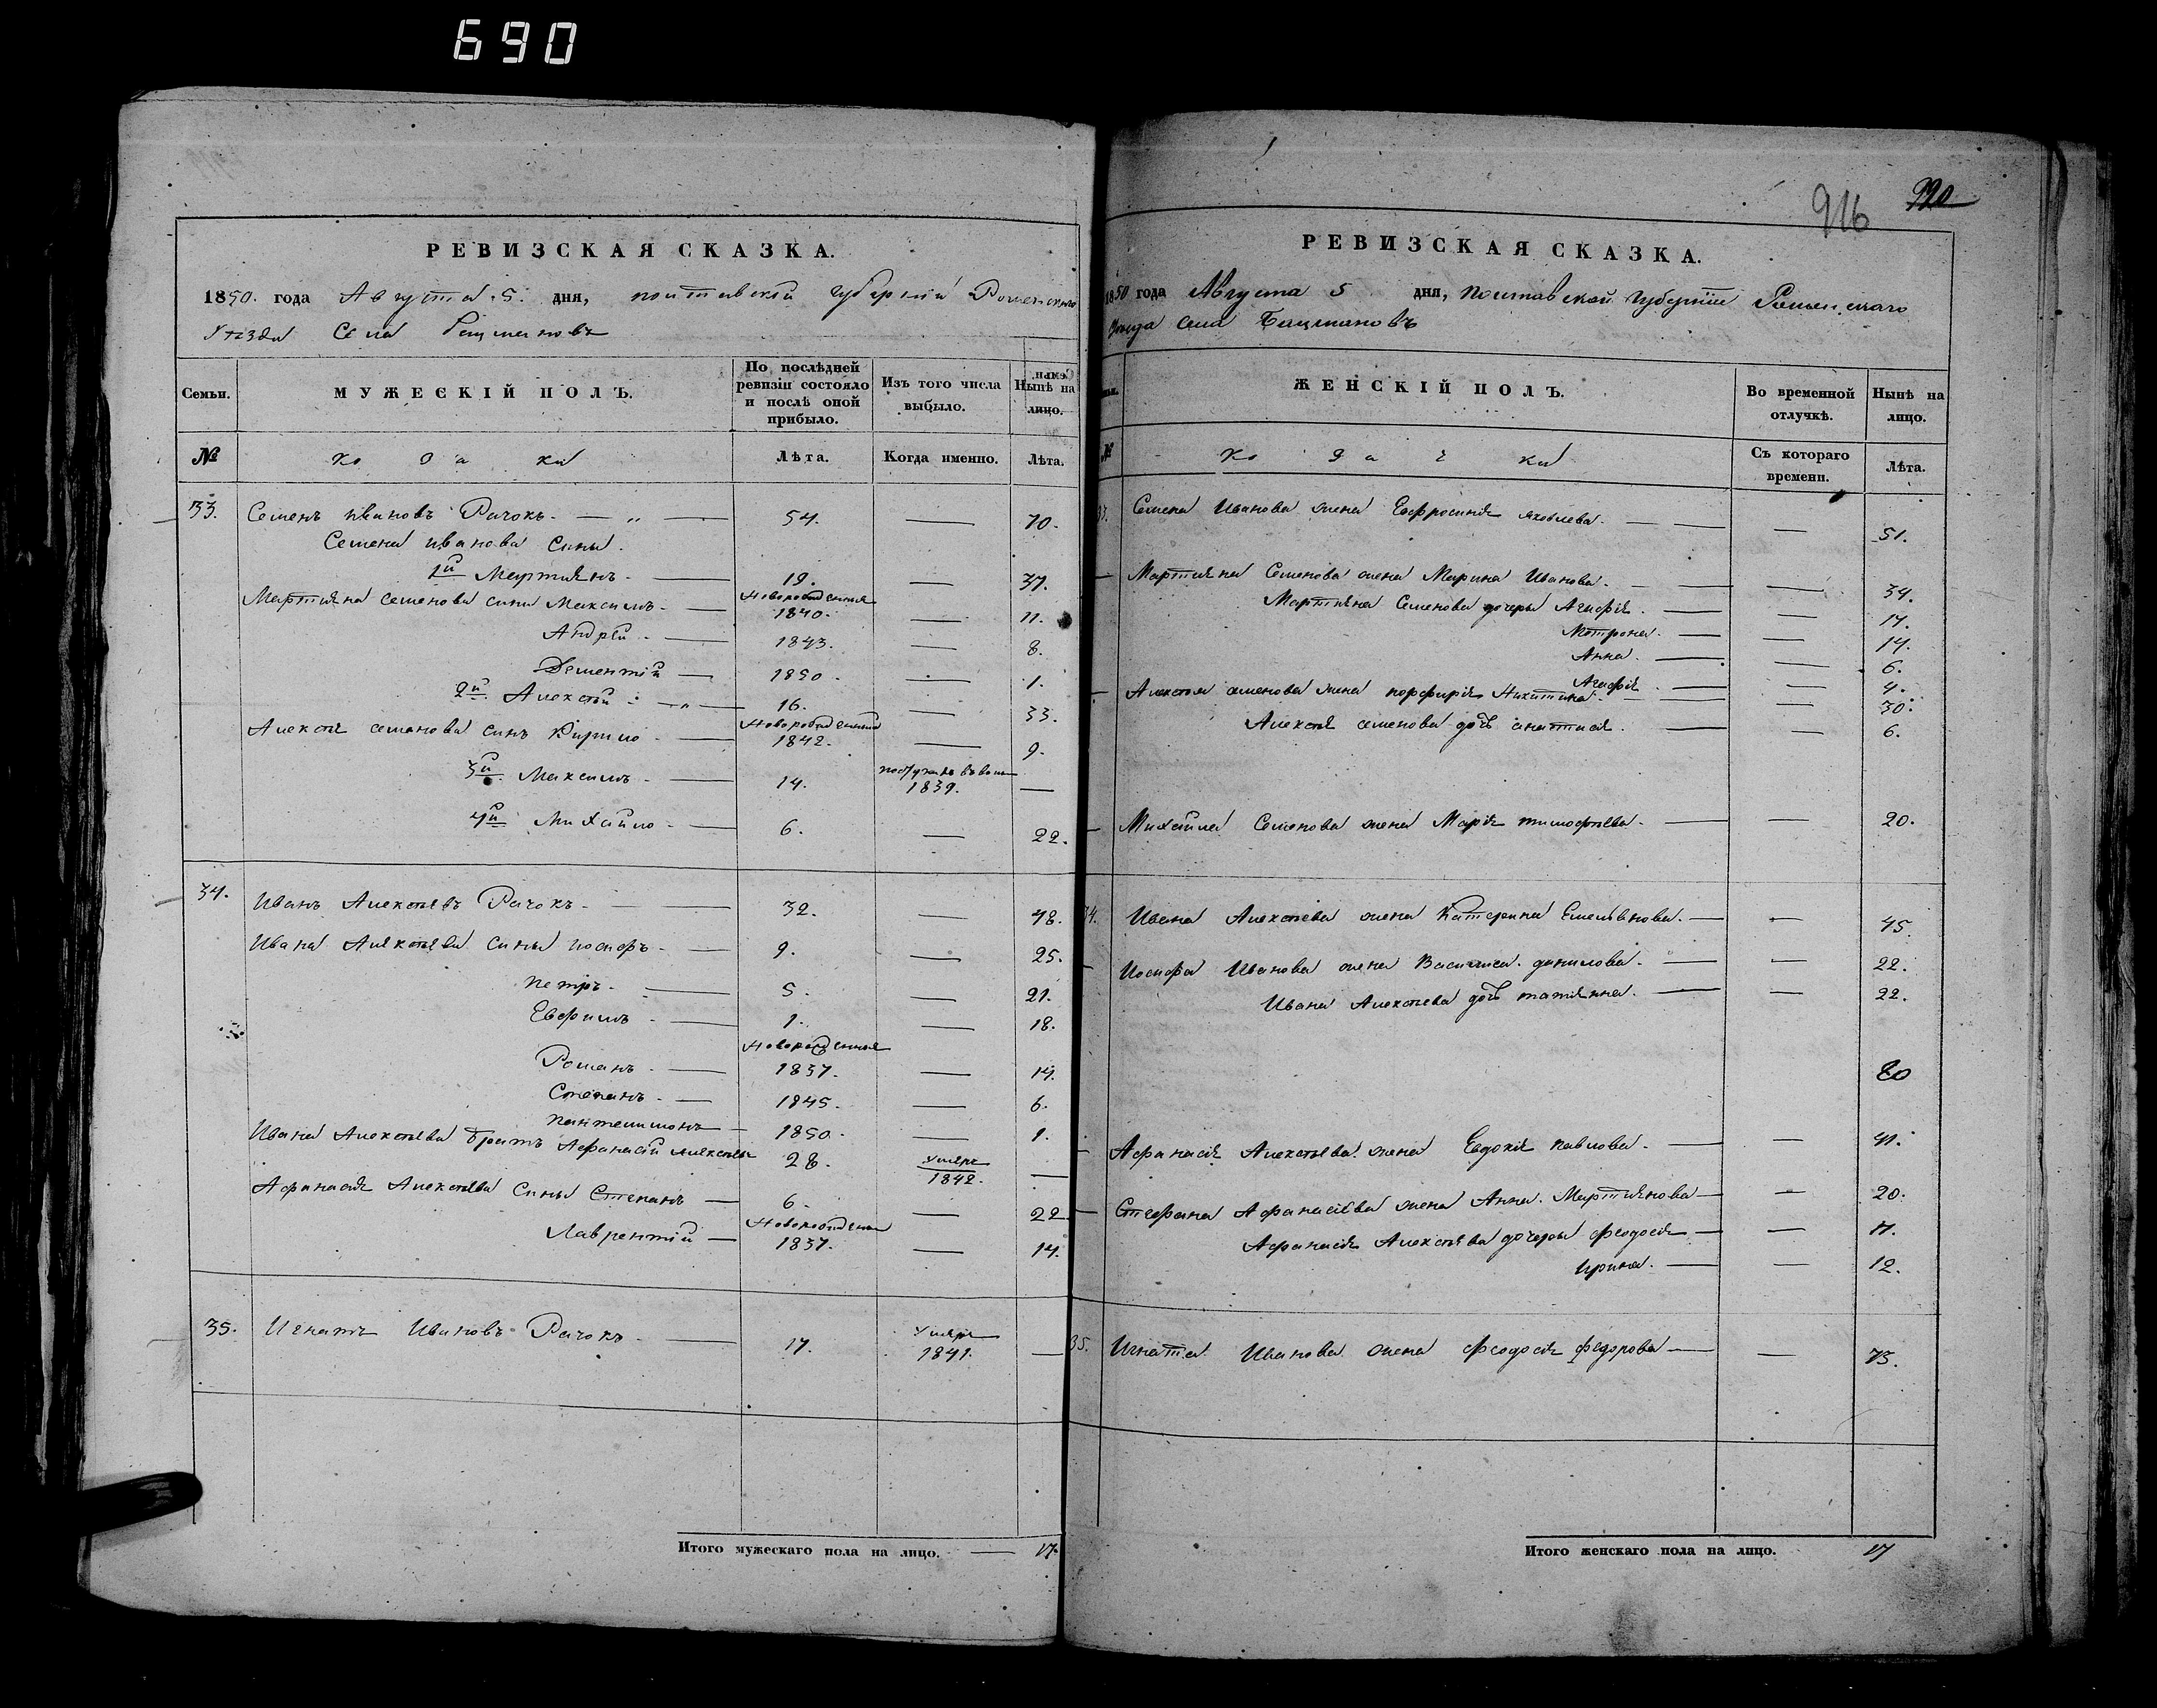 690
РЕВИЗСКАЯ СКАЗКА.
1850. года Августа 5. дня, полтавской губернии Роменского
Уѣзда Села Бацмановъ
Семьи. МУЖЕСКІЙ ПОЛЪ. По послѣдней ревизіи состояло и послѣ оной прибыло. Изъ того числа выбыло. Нынѣ на лицо.
№ козаки Лѣта. Когда именно. Лѣта.
33. Семенъ ивановъ Рачокъ. — „ — 54. — 70.
Семена иванова сины.
1й Мартиянъ. — 19. — 37.
Мартияна семенова сини Максимъ. — Новорожденныя 1840. — 11.
Андрей — 1843. — 8.
Дементій — 1850. — 1.
2й Алексѣй — „ — 16. — 33.
Алексѣя семенова синъ Кирило — Новорожденный 1842. — 9.
3й Максимъ — 14. 1839. —
4й Михайло — 6. — 22.
34. Иванъ Алексѣевъ Рачокъ. — 32. — 48.
Ивана Алексѣева сины иосифъ — 9. — 25.
петръ — 5. — 21.
Евфимъ — 1. — 18.
Новорожденныя
Романъ — 1837. — 14.
Степанъ — 1845. — 6.
пантелимонъ — 1850. — 1.
Ивана Алексѣева братъ Афанасій алексѣевъ 28. умеръ 1842. —
Афанасія Алексѣева сины Степанъ — 6. — 22.
Лаврентій — Новорожденный 1837. — 14.
35. Игнатъ Ивановъ Рачокъ. — 17. умеръ 1841. —
Итого мужескаго пола на лицо. — 17.
916 920
РЕВИЗСКАЯ СКАЗКА.
1850 года Августа 5 дня, полтавской губерніи Роменскаго
уезда села Бацмановъ
ЖЕНСКІЙ ПОЛЪ. Во временной отлучкѣ. Нынѣ на лицо.
№ козачки Съ котораго времени. Лѣта.
33. Семена Иванова жена Евфросинія яковлева. — — 51.
Мартияна Семенова жена Марина Иванова. — — 34.
Мартияна Семенова дочеры Агафія. — — 17.
Мотрона. — — 14.
Анна. — — 6.
Агафія — — 4.
Алексѣя семенова жена порфирія Никитина — — 30.
Алексѣя семенова дочь анастасія. — — 6.
Михайла Семенова жена Марія тимофѣева. — — 20.
34. Ивана Алексѣева жена Катерина Емельянова. — — 45.
Иосифа Иванова жена Василиса данилова. — — 22.
Ивана Алексѣева дочь татияна. — — 22.
20
Афанасія Алексѣева жена Евдокія павлова. — — 41.
Стефана Афанасіева жена Анна Мартиянова — — 20.
Афанасія Алексѣева дочеры феодосія — — 17.
ирина. — — 12.
35. Игната Иванова жена феодосія федорова — — 73.
Итого женскаго пола на лицо. 17